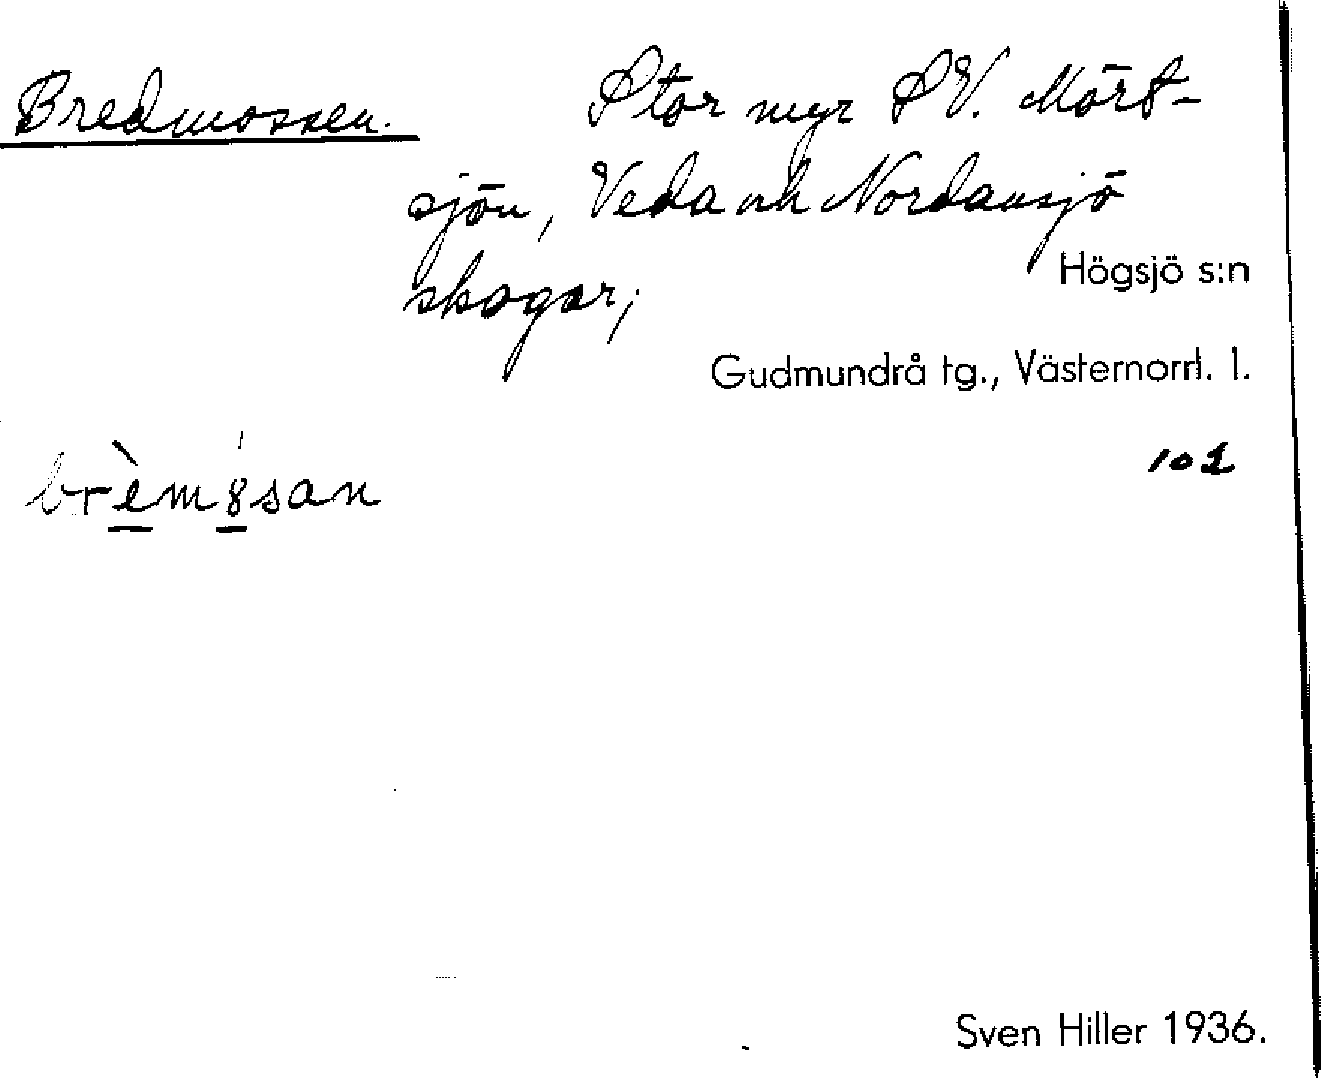 Bredmossen. Stor myr SV. Mört-
sjön, Veda och Nordansjö
skogar;
Högsjö s:n
Gudmundrå tg., Västernorrl. l.
101
brèm8san
Sven Hiller 1936.